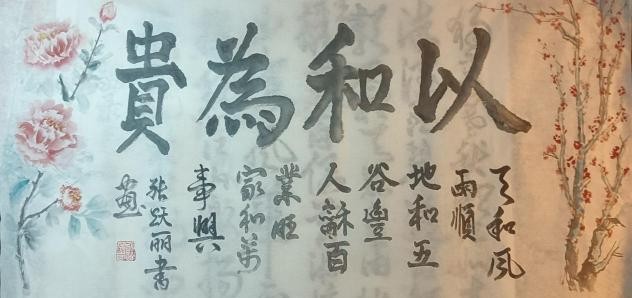 以和為貴
天和風
雨順
地和五
谷豐
人龢百
業旺
家和萬
事興
张跃丽書
畫